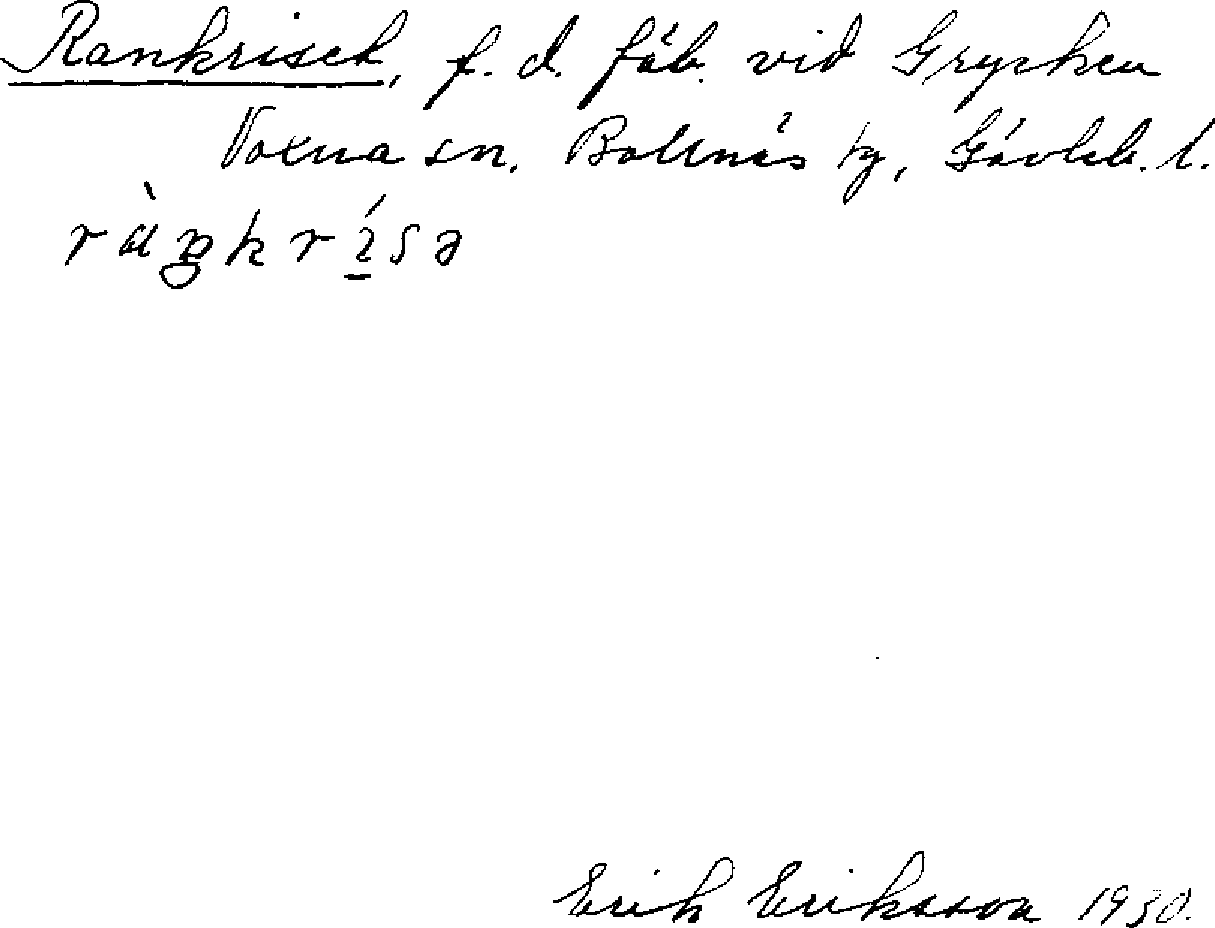 Rankriset, f. d. fäb. vid Grycken
Voxna sn. Bollnäs tg, Gävleb. l.
Erik Eriksson 1930.